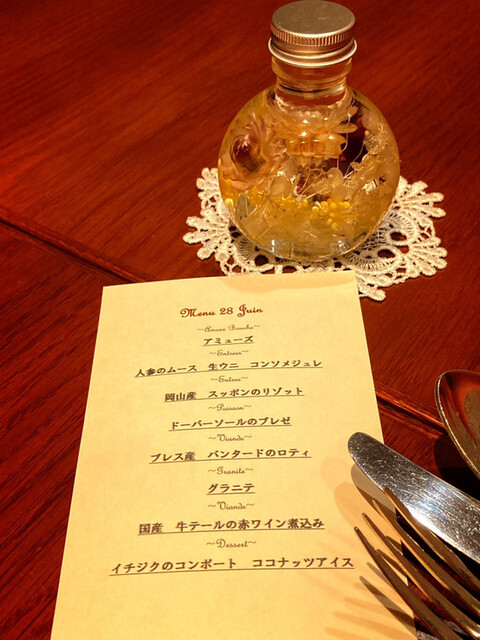 Menu 28 Juin
～Amuse Bouche～
アミューズ
～Entreer～
人参のムース 生ウニ コンソメジュレ
～Entree～
岡山産 スッポンのリゾット
～Poisson～
ドーバーソールのブレゼ
～Viande～
ブレス産 パンタードのロティ
～Granite～
グラニテ
～Viande～
国産 牛テールの赤ワイン煮込み
～Dessert～
イチジクのコンポート ココナッツアイス